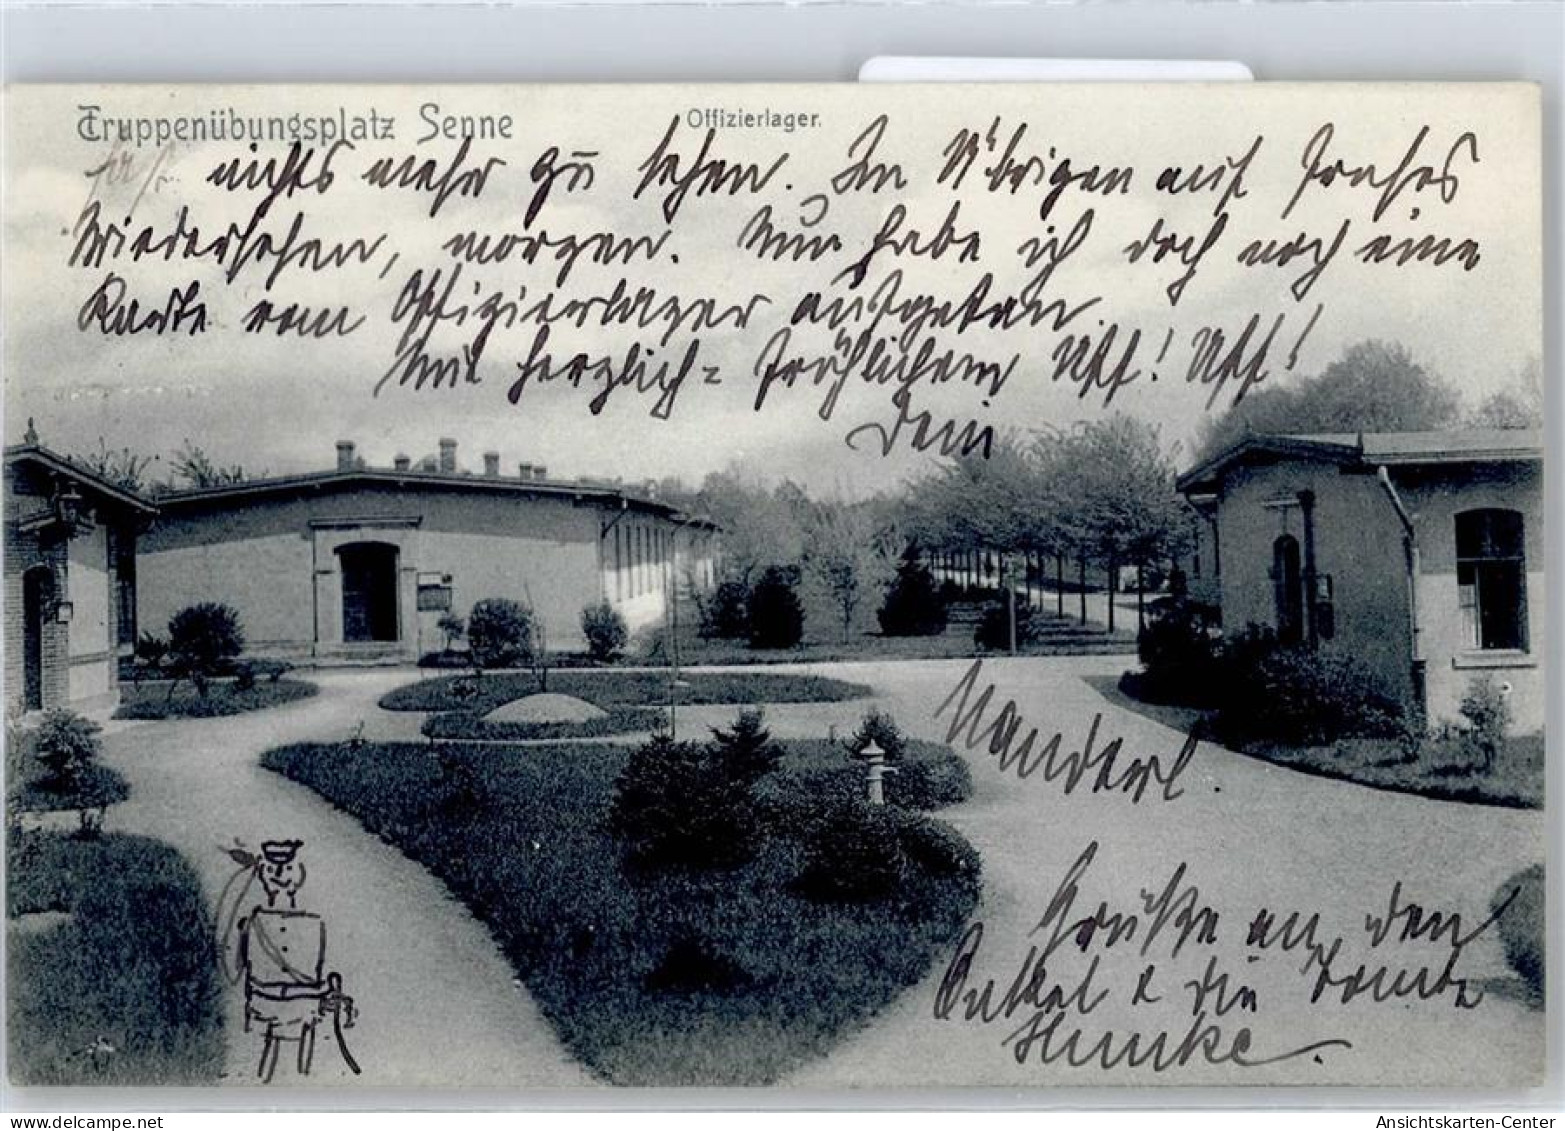 Truppenübungsplatz Senne Offizierlager.
nichts mehr zu sehen. Im Übrigen auf frohes
Wiedersehen, morgen. Nun habe ich doch noch eine
Karte vom Offizierlager aufgetan.
Mit herzlich= fröhlichem Uff! Uff!
Dein
Manderl.
Grüße an den
Onkel & die Tante
Hunke.
delcampe.net
Ansichtskarten-Center